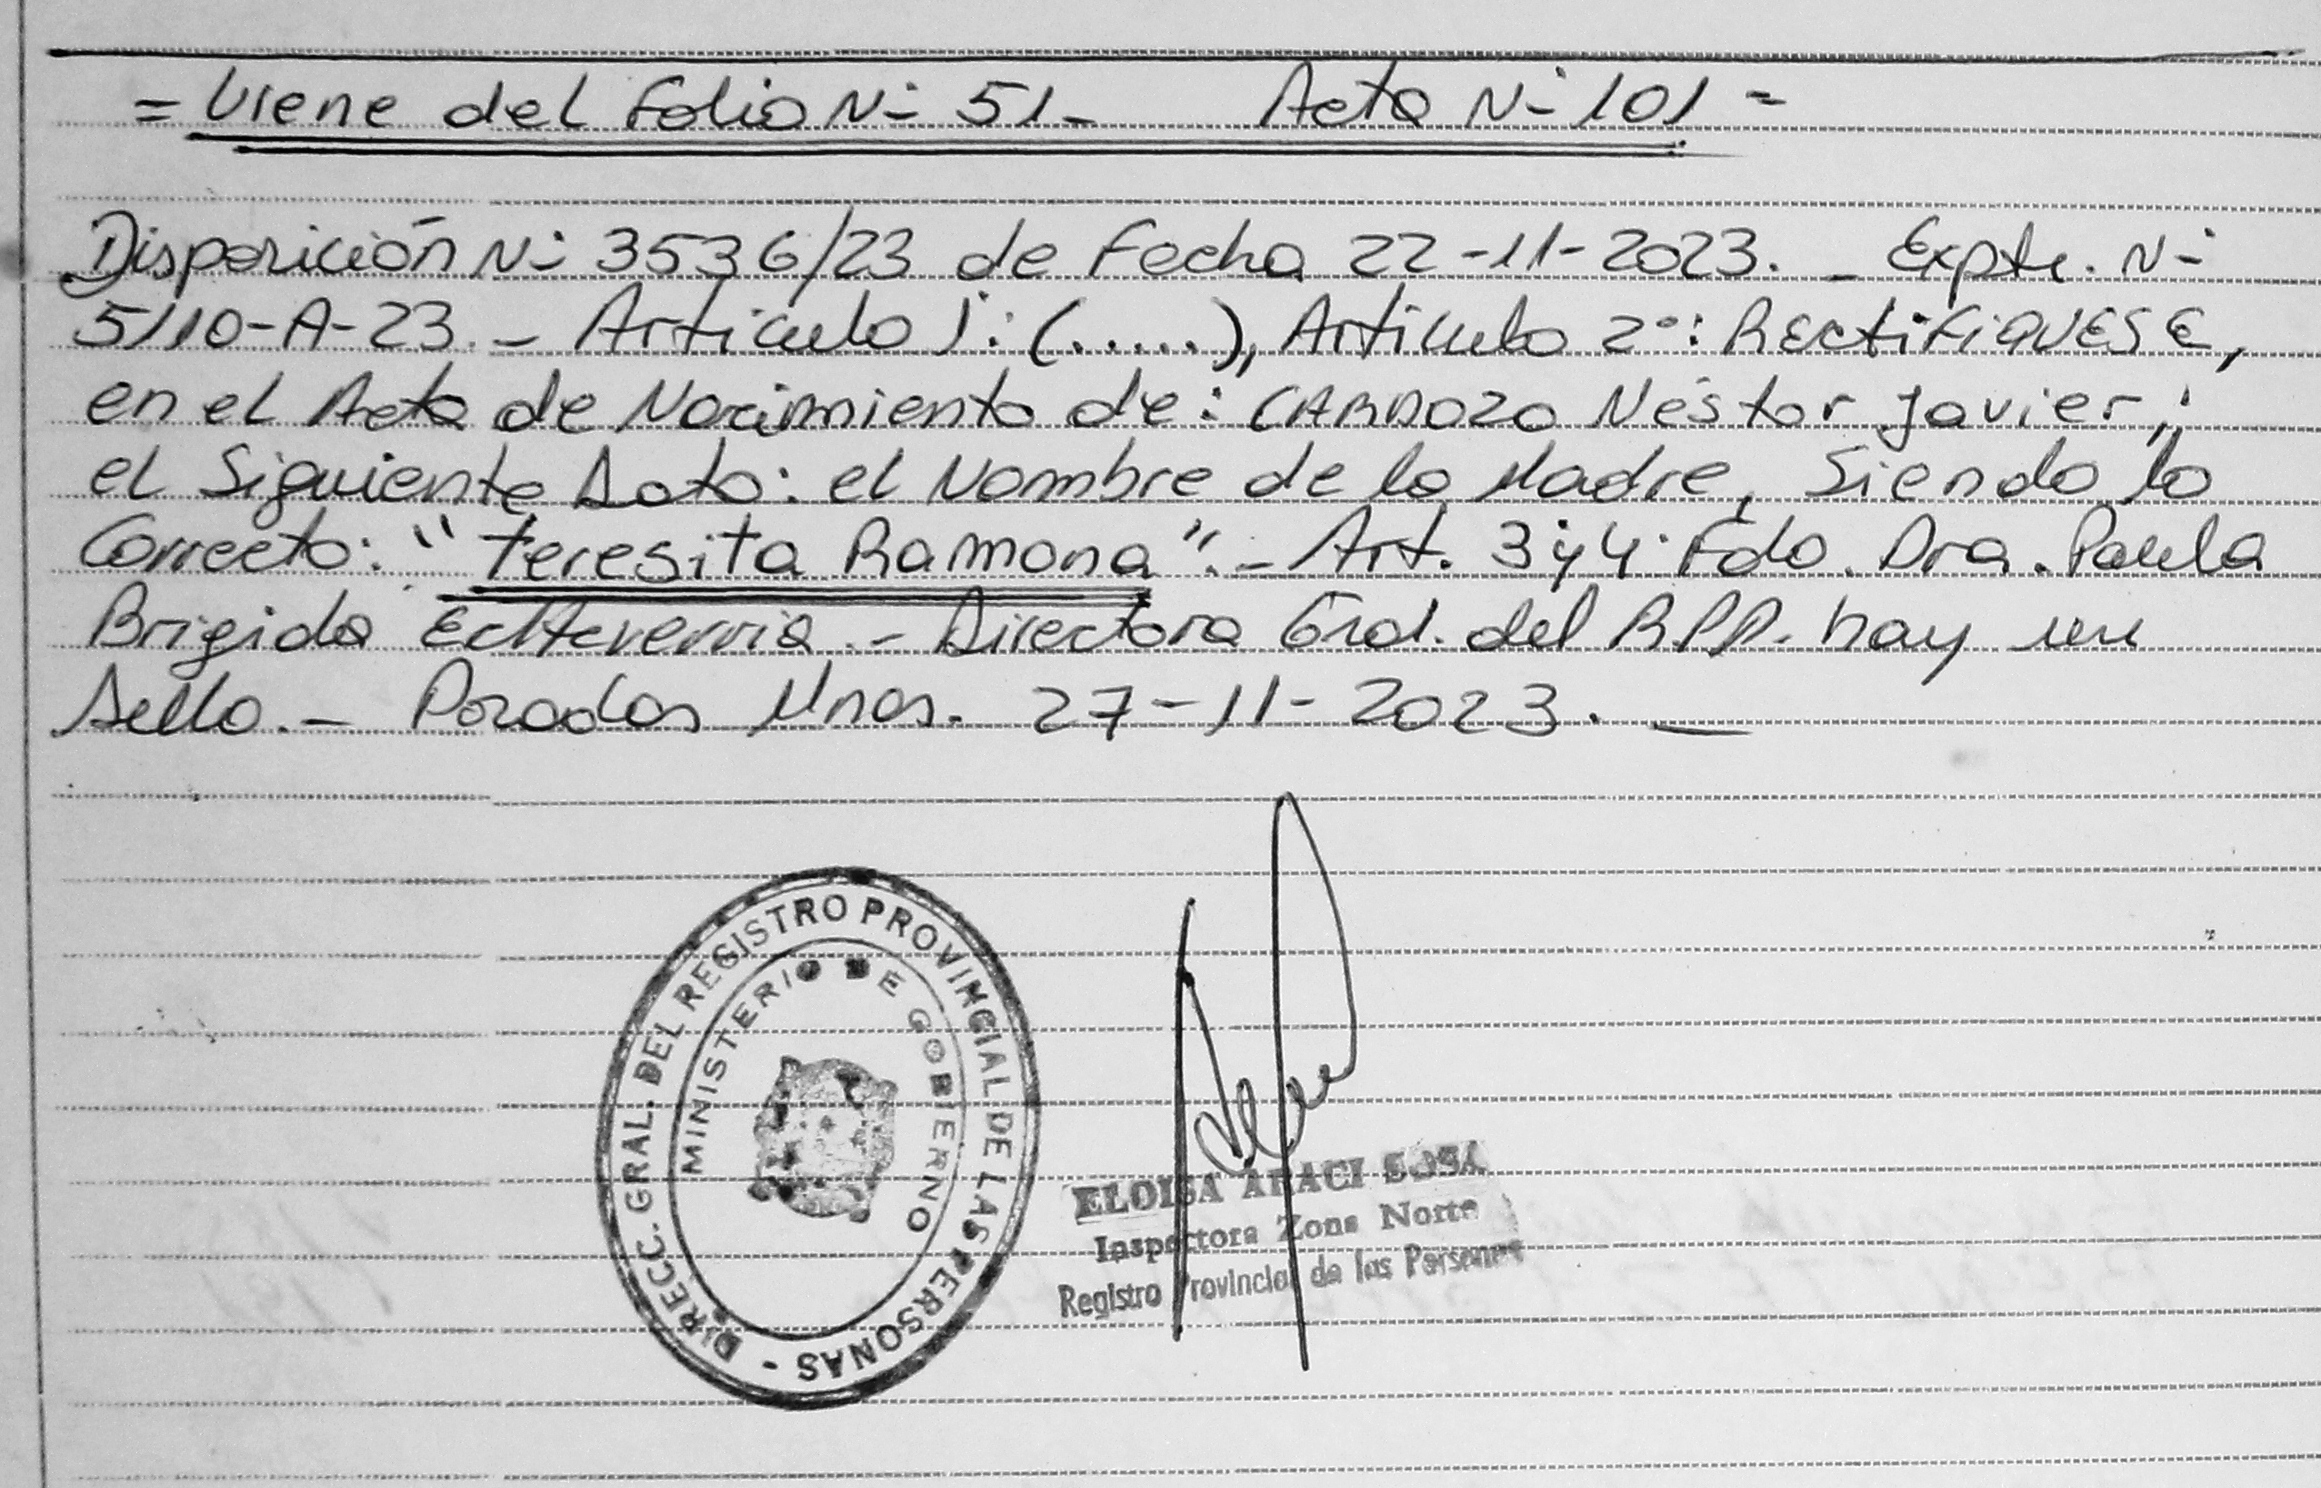 = Viene del Folio N° 51 - Acta N° 101 =
Disposición N° 3536/23 de Fecha 22-11-2023. - Expte. N°
5110-A-23. - Artículo 1°: (.....), Artículo 2°: RECtiFiQUESE,
en el Acta de Nacimiento de: CARDOZO Néstor Javier;
el Siguiente Dato: el Nombre de la Madre, Siendo lo
Correcto: "teresita Ramona". - Art. 3° y 4° Fdo. Dra. Paula
Brigida Echeverria. - Directora Gral. del R.P.P. hay un
Sello. - Posadas Mnes. 27-11-2023. -
DIRECC. GRAL. DEL REGISTRO PROVINCIAL DE LAS PERSONAS -
MINISTERIO DE GOBIERNO
ELOISA ARACI SOSA
Inspectora Zona Norte
Registro Provincial de las Personas